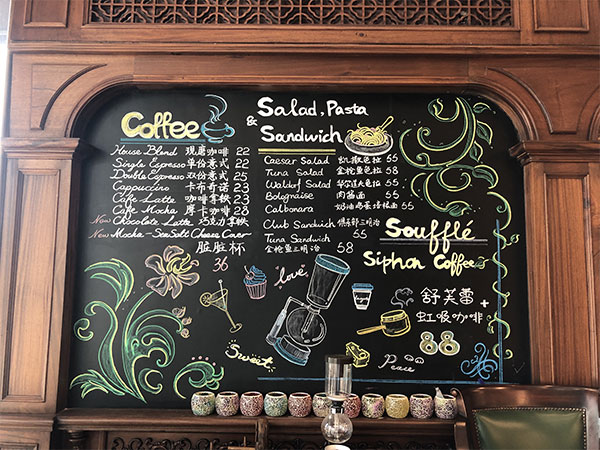 Coffee
House Blend 现磨咖啡 22
Single Espresso 单份意式 22
Double Espresso 双份意式 25
Cappuccino 卡布奇诺 23
Cafe Latte 咖啡拿铁 23
Cafe Mocha 摩卡咖啡 28
New Chocolate Latte 巧克力拿铁
New Mocha - Sea Salt Cheese Cover
脏脏杯
36
Salad, Pasta
& Sandwich
Caesar Salad 凯撒色拉 55
Tuna Salad 金枪鱼色拉 58
Waldorf Salad 华尔道夫色拉 55
Bolognaise 肉酱面 55
Calbonara 奶油鸡蛋培根面 55
Club Sandwich 俱乐部三明治 55
Tuna Sandwich 58
金枪鱼三明治
Soufflé
Siphon Coffee
舒芙蕾 +
虹吸咖啡
88
love
Sweet
Peace